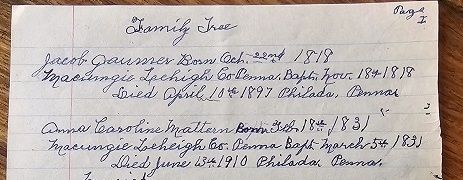 Page
I
Family Tree
Jacob Gaumer Born Oct. 22nd 1818
Macungie Lechigh Co Penna. Bapt. Nov. 18th 1818
Died April 10th 1897 Philada. Penna.
Anna Caroline Mattern Born Feb. 18th 1831
Macungie Leheigh Co. Penna Bapt. March 5th 1831
Died June 13th 1910 Philada. Penna.